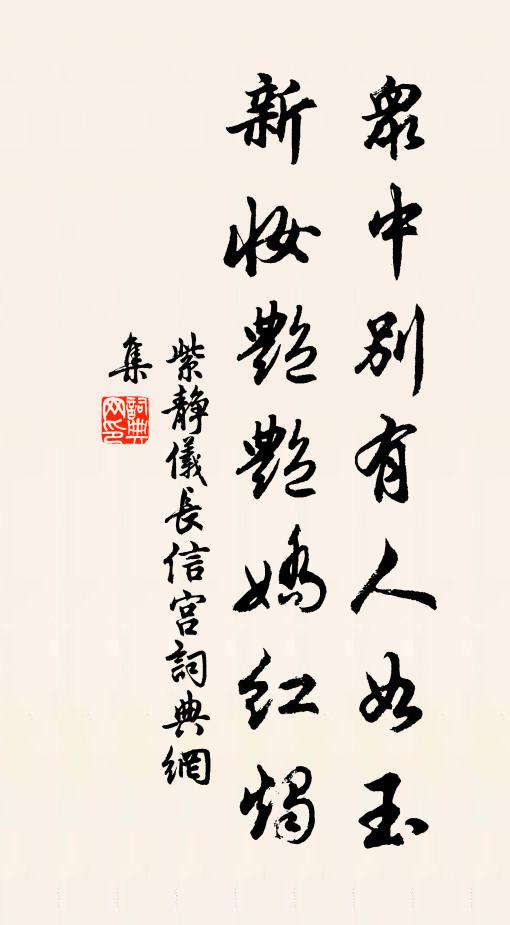 眾中別有人如玉
新妝艷艷嬌紅燭
紫靜儀長信宮詞典網
集
詞典網印